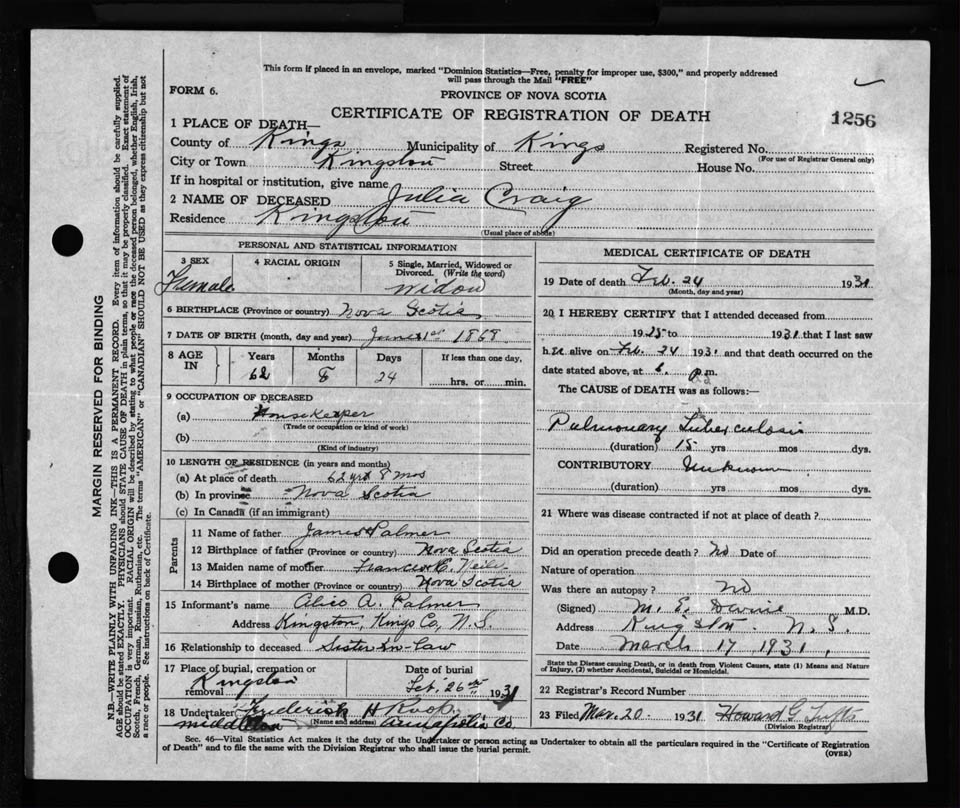 This form if placed in an envelope, marked "Dominion Statistics—Free, penalty for improper use, $300," and properly addressed
will pass through the Mail "FREE"
FORM 6.
PROVINCE OF NOVA SCOTIA
CERTIFICATE OF REGISTRATION OF DEATH
1256
1 PLACE OF DEATH—
County of Kings Municipality of Kings Registered No.
(For use of Registrar General only)
City or Town Kingston Street House No.
If in hospital or institution, give name
2 NAME OF DECEASED Julia Craig
Residence Kingston
(Usual place of abode)
PERSONAL AND STATISTICAL INFORMATION
3 SEX 4 RACIAL ORIGIN 5 Single, Married, Widowed or
Divorced. (Write the word)
Female widow
6 BIRTHPLACE (Province or country) Nova Scotia
7 DATE OF BIRTH (month, day and year) June 1st 1868
8 AGE IN Years Months Days If less than one day,
62 8 24 hrs. or min.
9 OCCUPATION OF DECEASED
(a) Housekeeper
(Trade or occupation or kind of work)
(b)
(Kind of industry)
10 LENGTH OF RESIDENCE (in years and months)
(a) At place of death 62 yrs 8 mos
(b) In province Nova Scotia
(c) In Canada (if an immigrant)
Parents
11 Name of father James Palmer
12 Birthplace of father (Province or country) Nova Scotia
13 Maiden name of mother Frances E.
14 Birthplace of mother (Province or country) Nova Scotia
15 Informant's name Alice A. Palmer
Address Kingston, Kings Co, N.S.
16 Relationship to deceased Sister in-law
17 Place of burial, cremation or Date of burial
removal Kingston Feb. 26th 1931
18 Undertaker Frederick H Roop
Middleton (Name and address) Annapolis Co.
MEDICAL CERTIFICATE OF DEATH
19 Date of death Feb. 24 1931
(Month, day and year)
20 I HEREBY CERTIFY that I attended deceased from
1925 to 1931 that I last saw
her alive on Feb. 24 1931 and that death occurred on the
date stated above, at p.m.
The CAUSE of DEATH was as follows:
Pulmonary Tuberculosis
(duration) 15 yrs mos dys.
CONTRIBUTORY Unknown
(duration) yrs mos dys.
21 Where was disease contracted if not at place of death?
Did an operation precede death? No Date of
Nature of operation
Was there an autopsy? No
(Signed) M. E. M.D.
Address Kingston. N.S.
Date March 17 1931,
State the Disease causing Death, or in death from Violent Causes, state (1) Means and Nature
of Injury, (2) whether Accidental, Suicidal or Homicidal.
22 Registrar's Record Number
23 Filed Mar. 20 1931 Howard G Tufts
(Division Registrar)
Sec. 46—Vital Statistics Act makes it the duty of the Undertaker or person acting as Undertaker to obtain all the particulars required in the "Certificate of Registration
of Death" and to file the same with the Division Registrar who shall issue the burial permit.
(OVER)
MARGIN RESERVED FOR BINDING
N.B.—WRITE PLAINLY WITH UNFADING INK—THIS IS A PERMANENT RECORD. Every item of information should be carefully supplied.
AGE should be stated EXACTLY. PHYSICIANS should STATE CAUSE OF DEATH in plain terms, so that it may be properly classified. Exact statement of
OCCUPATION is very important. RACIAL ORIGIN will be described by stating to what people or race the deceased person belonged, whether English, Irish,
Scotch, French, German, Russian, Ruthenian, etc. The terms "AMERICAN" or "CANADIAN" SHOULD NOT BE USED as they express citizenship but not
a race or people. See instructions on back of Certificate.